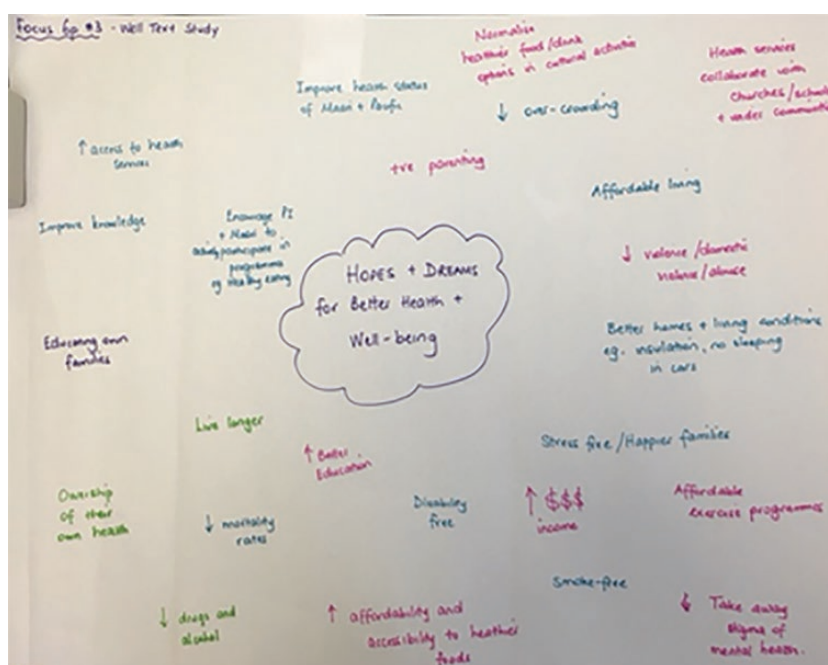 Focus Gp #3 - Well Text Study
Normalise
healthier food/drink
options in cultural activities
Health services
collaborate with
churches/schools
+ wider communities
Improve health status
of Maori + Pasifika
↓ over-crowding
↑ access to health
services
+ve parenting
Affordable living
Improve knowledge
Encourage PI
+ Maori to
actively participate in
programme
eg Healthy eating
HOPES + DREAMS
for Better Health +
Well-being
↓ violence/domestic
violence/abuse
Better homes + living conditions
eg. insulation, no sleeping
in cars
Educating own
families
Live longer
↑ Better
Education
Stress free/Happier families
Ownership
of their
own health
↓ mortality
rates
Disability
free
↑ $$$
income
Affordable
exercise programmes
Smoke-free
↓ drugs and
alcohol
↑ affordability and
accessibility to healthier
foods
Take away
stigma of
mental health.